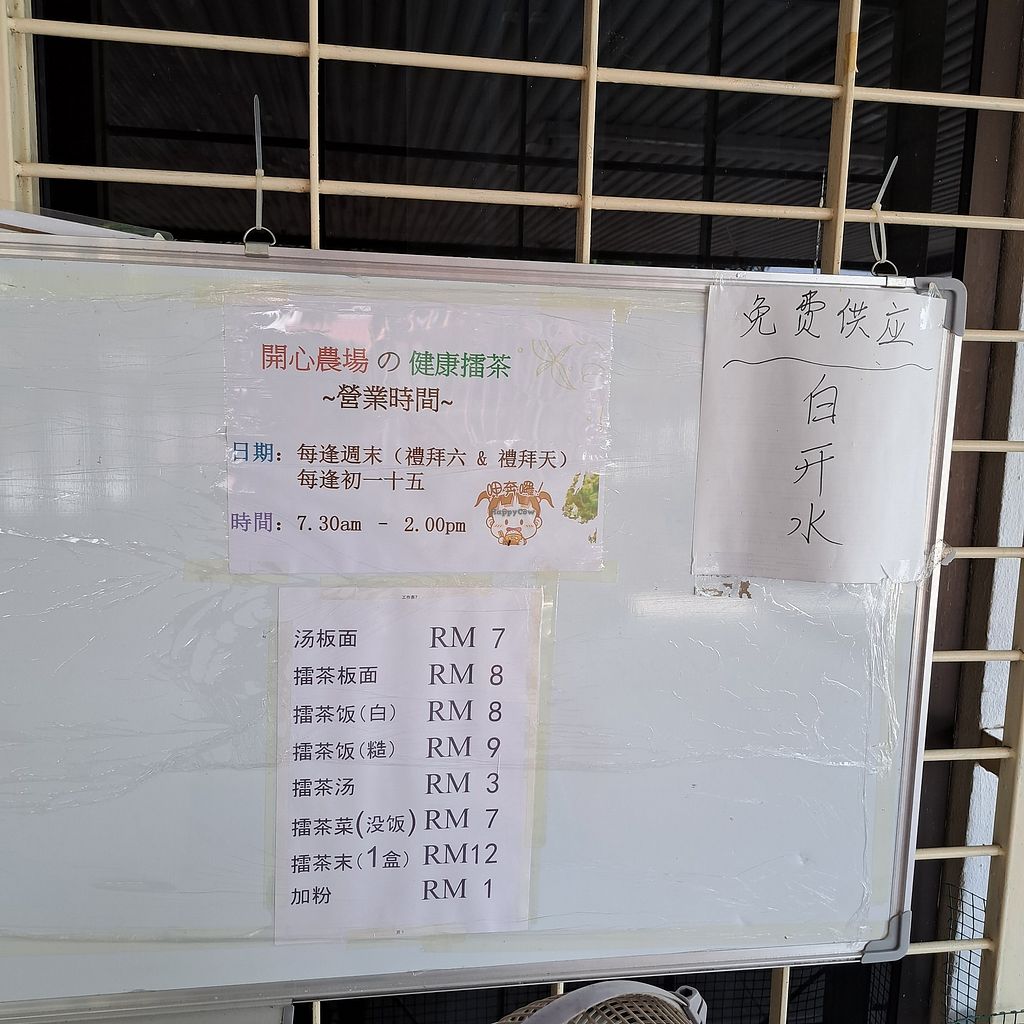 開心農場 の 健康擂茶
~營業時間~
日期：每逢週末（禮拜六 & 禮拜天）
每逢初一十五
時間：7.30am - 2.00pm
HappyCow
免费供应
白
开
水
汤板面 RM 7
擂茶板面 RM 8
擂茶饭(白) RM 8
擂茶饭(糙) RM 9
擂茶汤 RM 3
擂茶菜(没饭) RM 7
擂茶末(1盒) RM12
加粉 RM 1